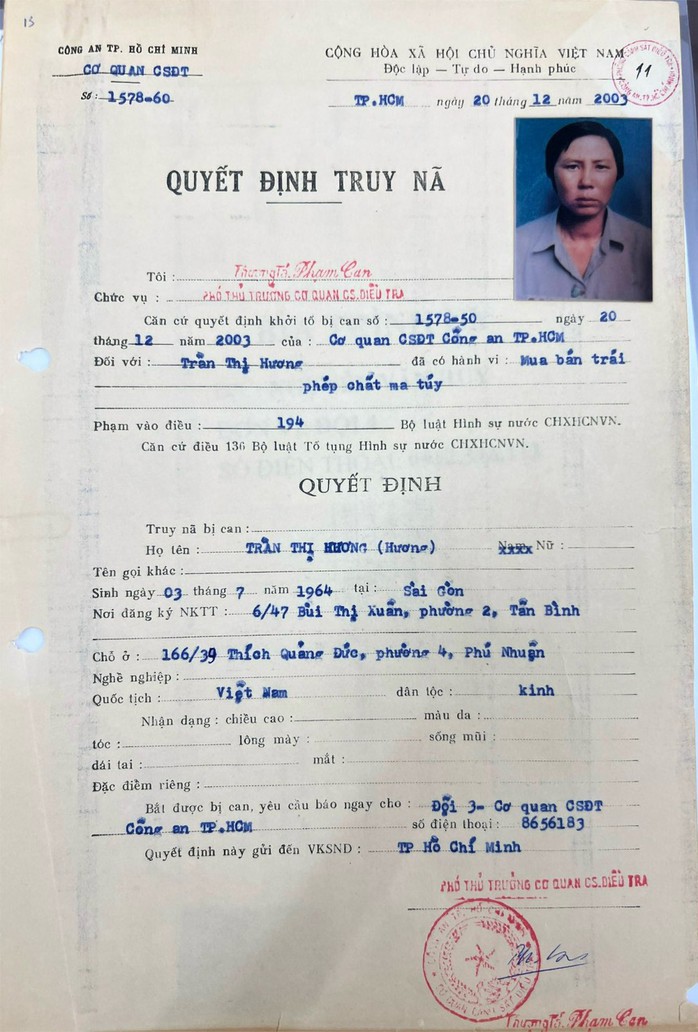 13
CÔNG AN TP. HỒ CHÍ MINH
CƠ QUAN CSĐT
Số: 1578-60
CỘNG HÒA XÃ HỘI CHỦ NGHĨA VIỆT NAM
Độc lập — Tự do — Hạnh phúc
11
TP.HCM ngày 20 tháng 12 năm 2003
QUYẾT ĐỊNH TRUY NÃ
Tôi : Thượng tá Phạm Can
Chức vụ : PHÓ THỦ TRƯỞNG CƠ QUAN CS.ĐIỀU TRA
Căn cứ quyết định khởi tố bị can số : 1578-50 ngày 20
tháng 12 năm 2003 của : Cơ quan CSĐT Công an TP.HCM
Đối với : Trần Thị Hương đã có hành vi : Mua bán trái
phép chất ma túy
Phạm vào điều : 194 Bộ luật Hình sự nước CHXHCNVN.
Căn cứ điều 136 Bộ luật Tố tụng Hình sự nước CHXHCNVN.
QUYẾT ĐỊNH
Truy nã bị can :
Họ tên : TRẦN THỊ HƯƠNG (Hương) Nam Nữ :
Tên gọi khác :
Sinh ngày 03 tháng 7 năm 1964 tại : Sài Gòn
Nơi đăng ký NKTT : 6/47 Bùi Thị Xuân, phường 2, Tân Bình
Chỗ ở : 166/39 Thích Quảng Đức, phường 4, Phú Nhuận
Nghề nghiệp :
Quốc tịch : Việt Nam dân tộc : kinh
Nhận dạng : chiều cao : màu da :
tóc : lông mày : sống mũi :
dái tai : mắt :
Đặc điểm riêng :
Bắt được bị can, yêu cầu báo ngay cho : Đội 3- Cơ quan CSĐT
Công an TP.HCM số điện thoại : 8656183
Quyết định này gửi đến VKSND : TP Hồ Chí Minh
PHÓ THỦ TRƯỞNG CƠ QUAN CS.ĐIỀU TRA
Thượng tá Phạm Can